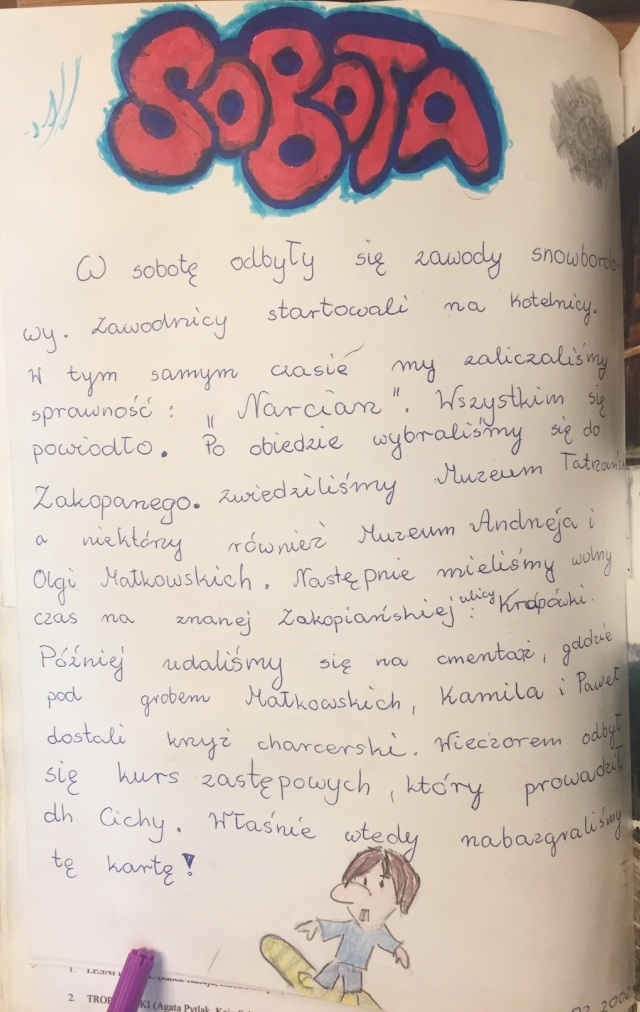 SOBOTA
W sobotę odbyły się zawody snowbordo-
wy. Zawodnicy startowali na Kotelnicy.
W tym samym czasie my zaliczaliśmy
sprawność: „Narciarz". Wszystkim się
powiodło. Po obiedzie wybraliśmy się do
Zakopanego. zwiedziliśmy Muzeum Tatrzańs
a niektórzy również Muzeum Andrzeja i
Olgi Małkowskich. Następnie mieliśmy wolny
czas na znanej Zakopiańskiej ulicy: Krupówki.
Później udaliśmy się na cmentaż, gdzie
pod grobem Małkowskich, Kamila i Paweł
dostali krzyż charcerski. Wieczorem odbył
się kurs zastępowych, który prowadził
dh. Cichy. Właśnie wtedy nabazgraliśmy
tę kartę!
1. LEŚNI
2. TROP KI (Agata Pytlak,